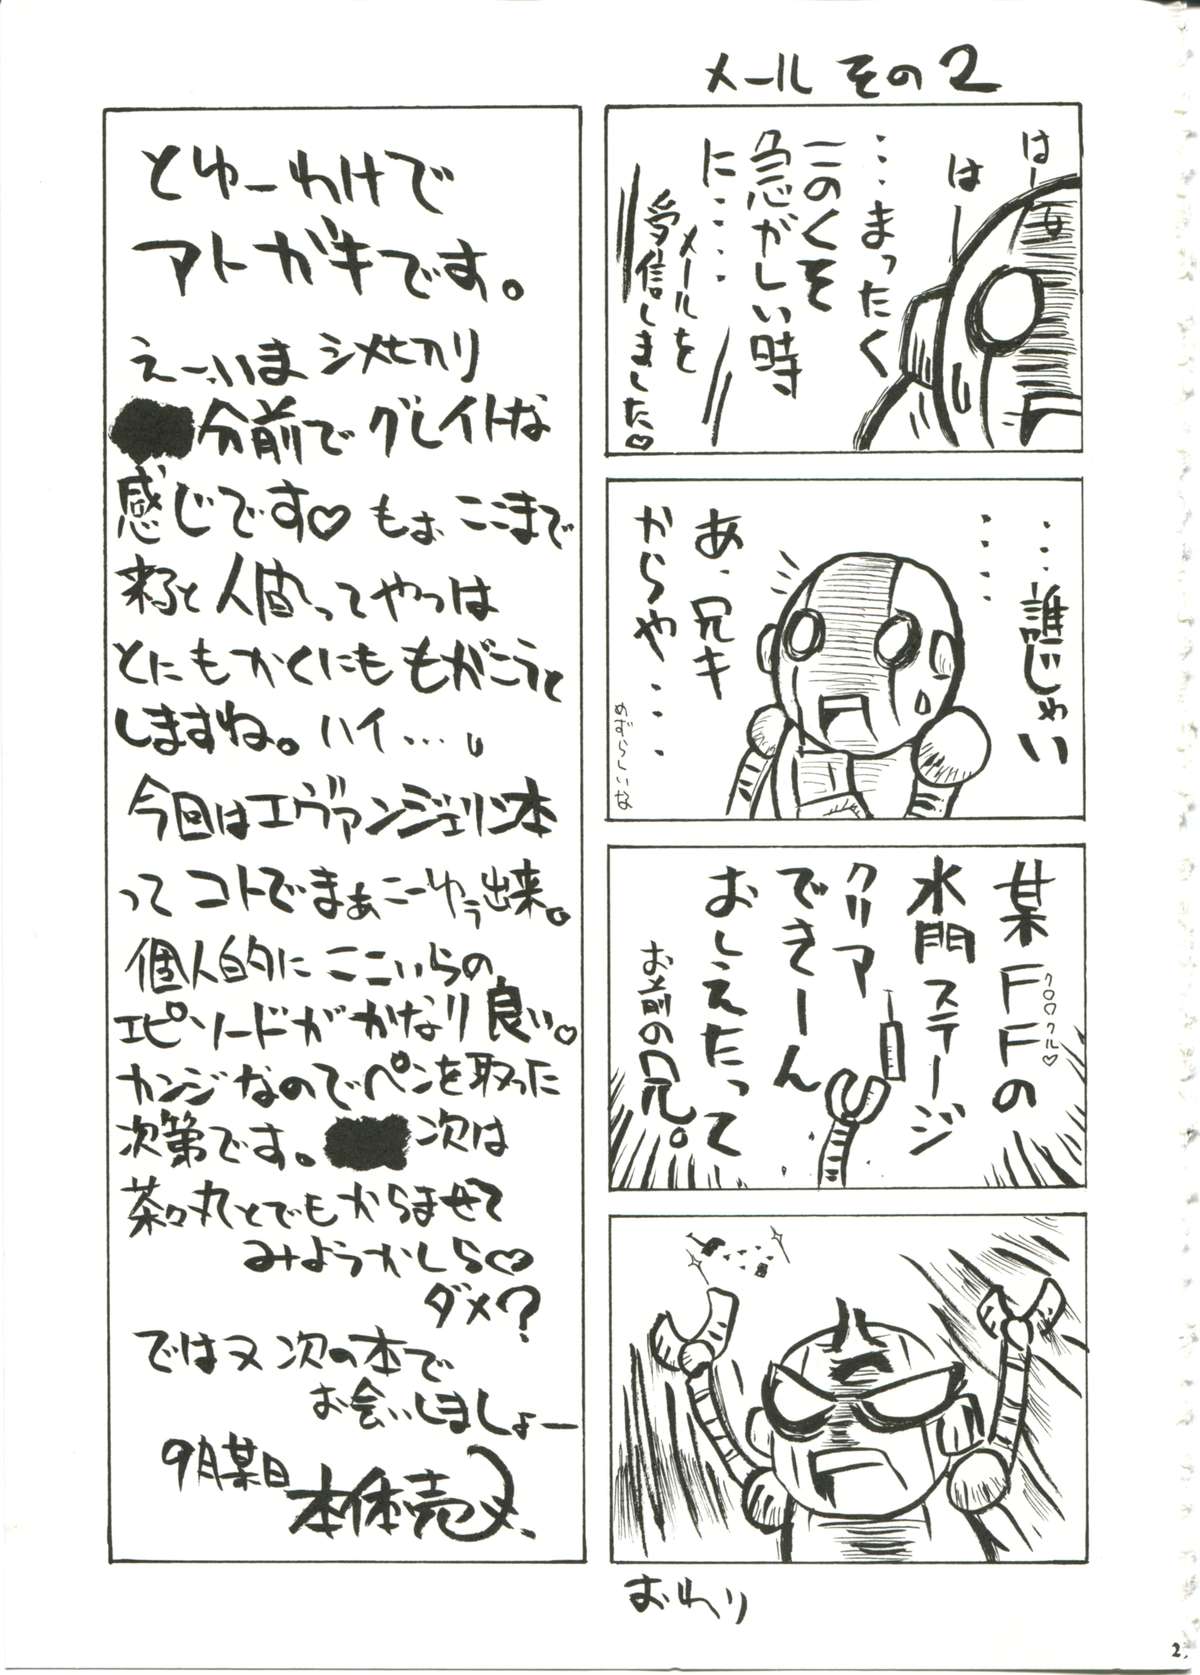 メール その2
はー
はー
…まったく
このくそ
急がしい時
に……
メールを
受信しました♡
…誰じゃい
……
あ、兄キ
からや…
めずらしいな
某FFの
クロクル♡
水門ステージ
クリア
できーん
おしえたって
お前の兄。
おわり
とゆーわけで
アトガキです。
えー、いま シメ切り
分前で グレイトな
感じです♡ もぉ ここまで
来ると 人間ってやつは
とにもかくにも もがこうと
しますね。ハイ…。
今回はエヴァンジェリン本
って コトでまぁこーゆぅ出来。
個人的に ここいらの
エピソードが かなり良い。
カンジなのでペンを取った
次第です。 次は
茶々丸とでもからませて
みようかしら♡
ダメ?
ではヌ 次の本で
お会いしましょー
9月某日
本体売
2